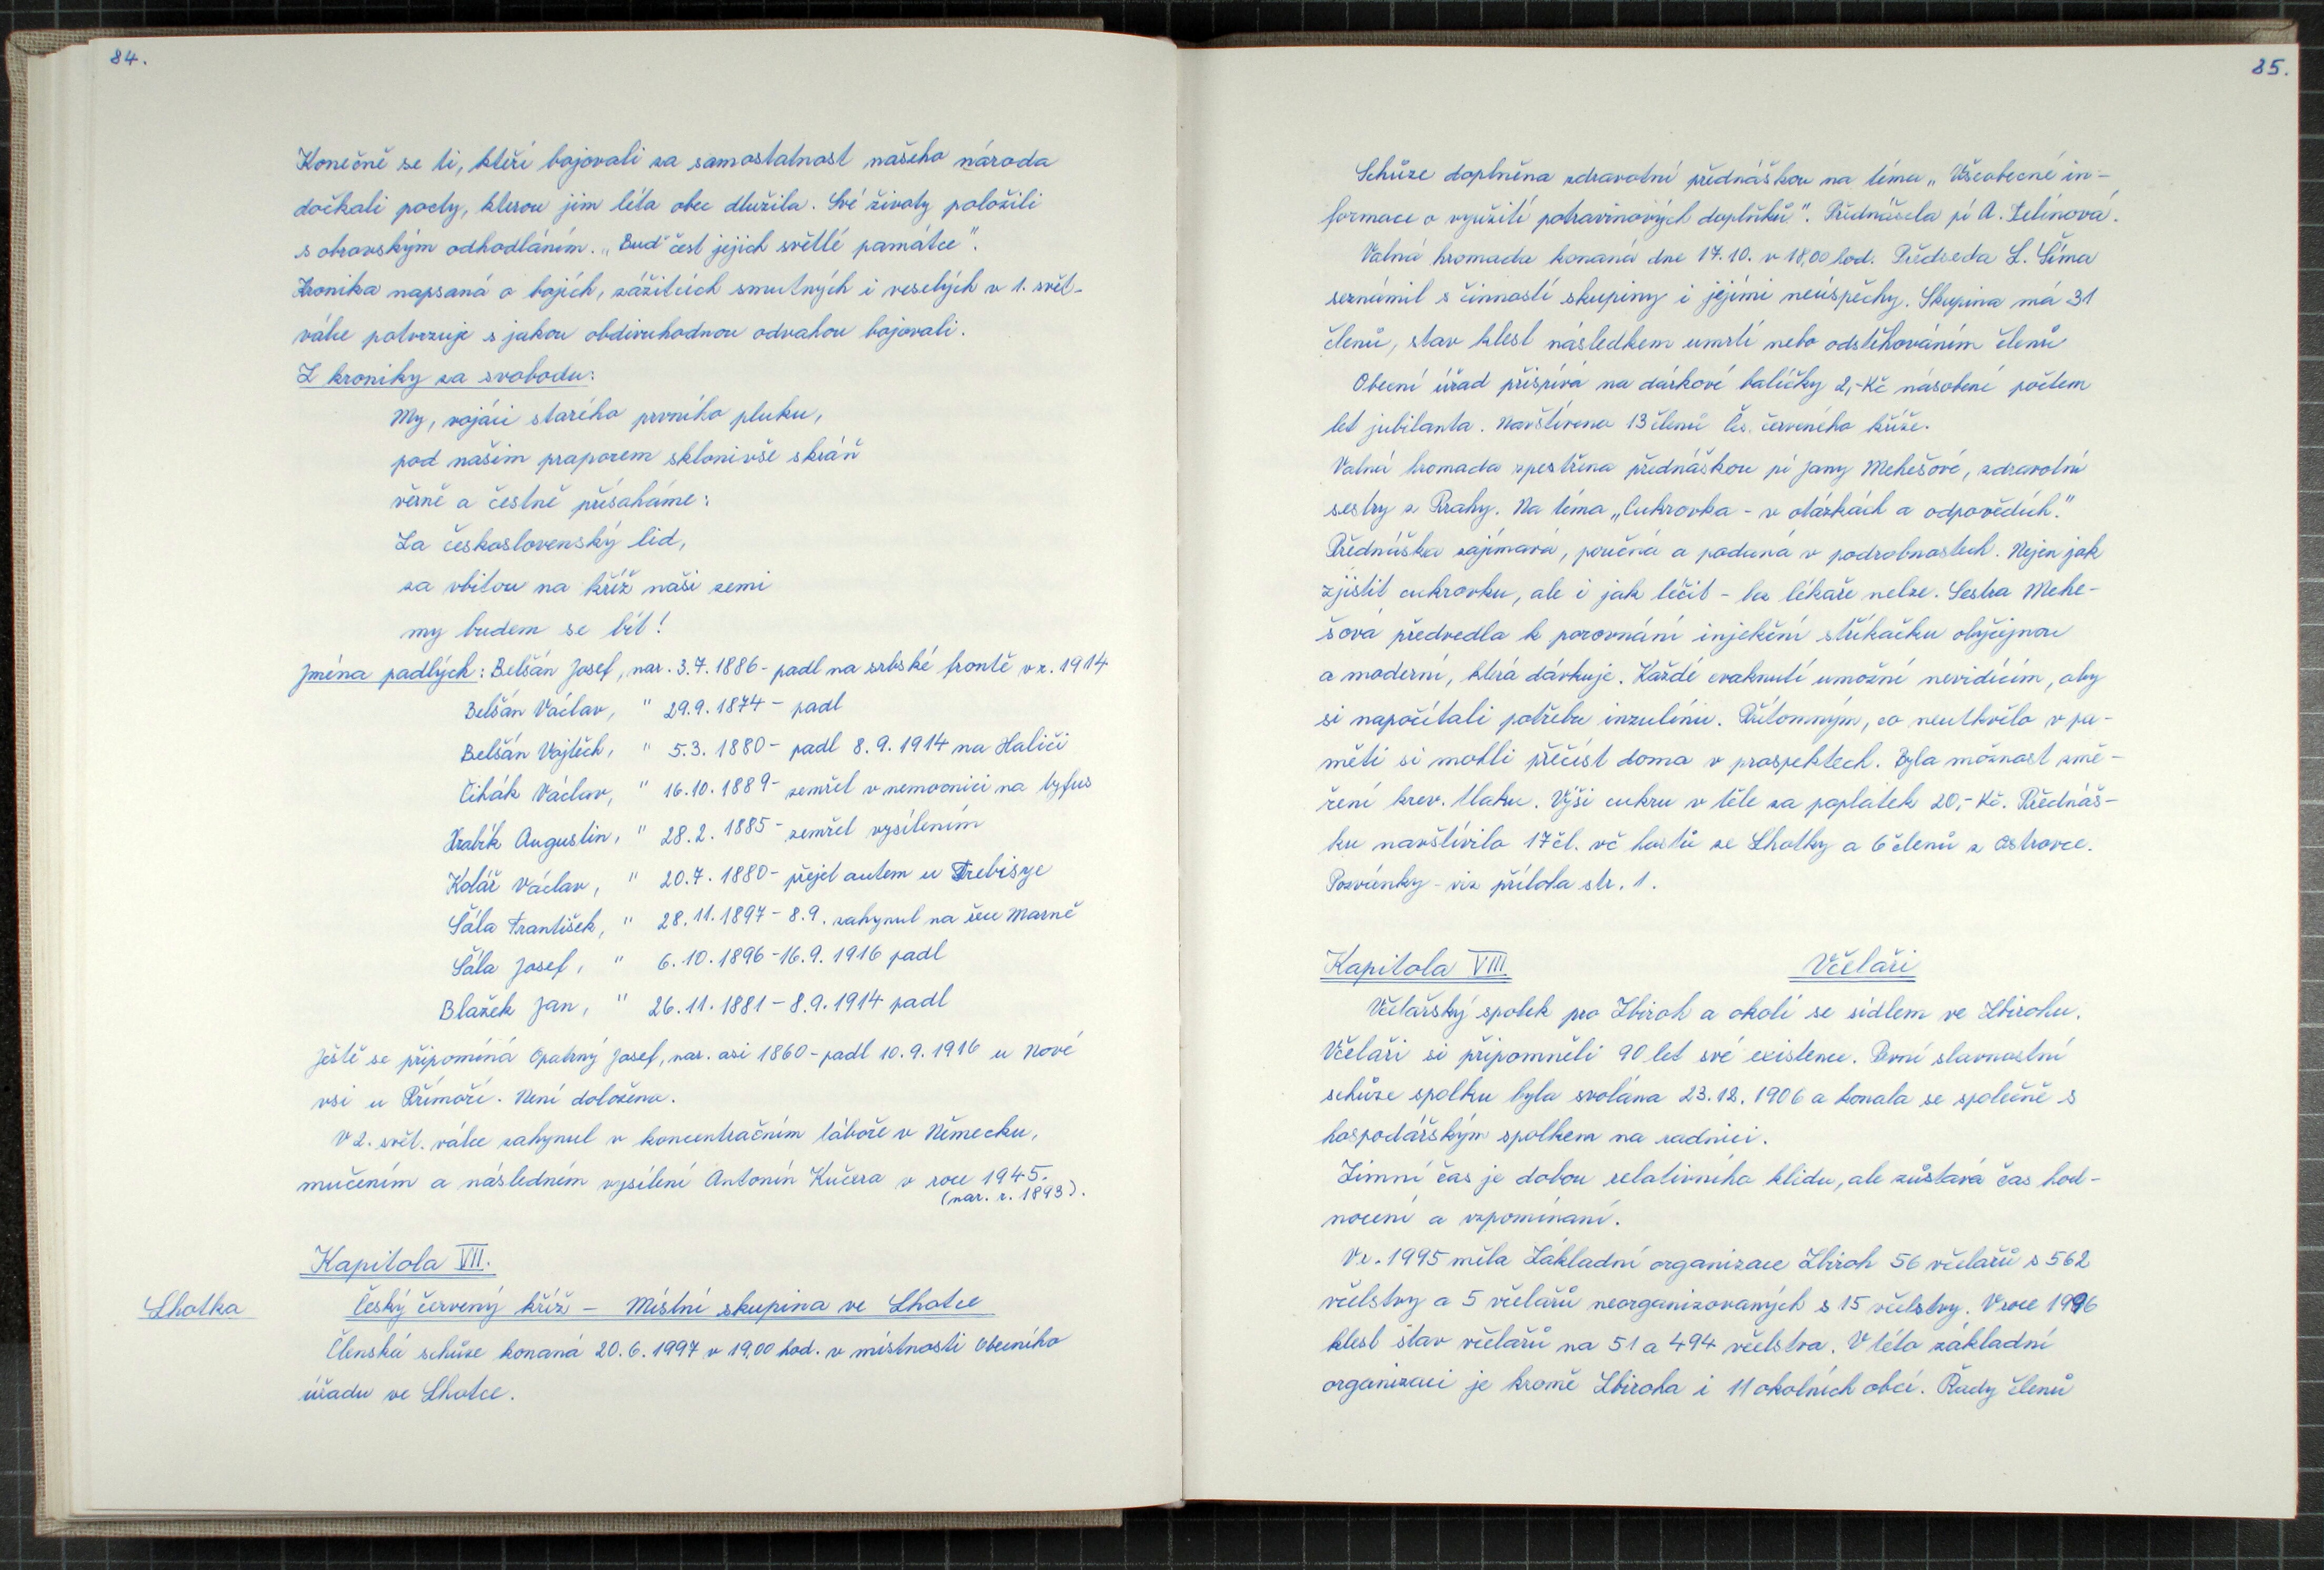 84.
Konečně se ti, kteří bojovali za samostatnost našeho národa
dočkali pocty, kterou jim léta obec dlužila. Své životy položili
s obrovským odhodláním. „Buď čest jejich světlé památce".
Kronika napsaná o bojích, zážitcích smutných i veselých v 1. svět-
válce potvrzuje s jakou obdivuhodnou odvahou bojovali.
Z kroniky za svobodu:
My, vojáci starého prvního pluku,
pod naším praporem sklonivše skráň
věrně a čestně přísaháme:
Za československý lid,
za vbitou na kříž naši zemi
my budem se bít!
Jména padlých: Belšán Josef, nar. 3.7.1886 - padl na srbské frontě v r. 1914
Belšán Václav, " 29.9.1874 - padl
Belšán Vojtěch, " 5.3.1880 - padl 8.9.1914 na Haliči
Čihák Václav, " 16.10.1889 - zemřel v nemocnici na tyfus
Hrabík Augustin, " 28.2.1885 - zemřel vysílením
Kolář Václav, " 20.7.1880 - přejet autem u Trebisze
Šála František, " 28.11.1897 - 8.9. zahynul na řece Marně
Šála Josef, " 6.10.1896 - 16.9.1916 padl
Blažek Jan, " 26.11.1881 - 8.9.1914 padl
Ještě se připomíná Opatrný Josef, nar. asi 1860 - padl 10.9.1916 u Nové
vsi u Přímoří. Není doloženo.
V 2. svět. válce zahynul v koncentračním táboře v Německu,
mučením a následném vysílení Antonín Kučera v roce 1945.
(nar. r. 1893).
Kapitola VII.
Lhotka
Český červený kříž - Místní skupina ve Lhotce
Členská schůze konaná 20.6.1997 v 19,00 hod. v místnosti Obecního
úřadu ve Lhotce.
85.
Schůze doplněna zdravotní přednáškou na téma „Všeobecné in-
formace o využití potravinových doplňků". Přednášela pí A. Zelínová.
Valná hromada konaná dne 17.10. v 18,00 hod. Předseda L. Šíma
seznámil s činností skupiny i jejími neúspěchy. Skupina má 31
členů, stav klesl následkem umrtí nebo odstěhováním členů
Obecní úřad přispívá na dárkové balíčky 2,- Kč násobené počtem
let jubilanta. Navštíveno 13 členů Čs. červeného kříže.
Valná hromada zpestřena přednáškou pí Jany Mehešové, zdravotní
sestry z Prahy. Na téma „Cukrovka - v otázkách a odpovědích."
Přednáška zajímavá, poučná a podaná v podrobnostech. Nejen jak
zjistit cukrovku, ale i jak léčit - bez lékaře nelze. Sestra Mehe-
šová předvedla k porovnání injekční stříkačku obyčejnou
a moderní, která dávkuje. Každé cvaknutí umožní nevidícím, aby
si napočítali potřebu inzulínu. Přítomným, co neutkvělo v pa-
měti si mohli přečíst doma v prospektech. Byla možnost změ-
ření krev. tlaku. Výši cukru v těle za poplatek 20,- Kč. Přednáš-
ku navštívilo 17 čl. vč hostů ze Lhotky a 6 členů z Ostrovce.
Pozvánky - viz příloha str. 1.
Kapitola VIII. Včelaři
Včelařský spolek pro Zbiroh a okolí se sídlem ve Zbirohu.
Včelaři si připomněli 90 let své existence. První slavnostní
schůze spolku byla svolána 23.12.1906 a konala se společně s
hospodářským spolkem na radnici.
Zimní čas je dobou relativního klidu, ale zůstává čas hod-
nocení a vzpomínaní.
V r. 1995 měla Základní organizace Zbiroh 56 včelařů s 562
včelstvy a 5 včelařů neorganizovaných s 15 včelstvy. V roce 1996
klesl stav včelařů na 51 a 494 včelstva. V této základní
organizaci je kromě Zbiroha i 11 okolních obcí. Řady členů